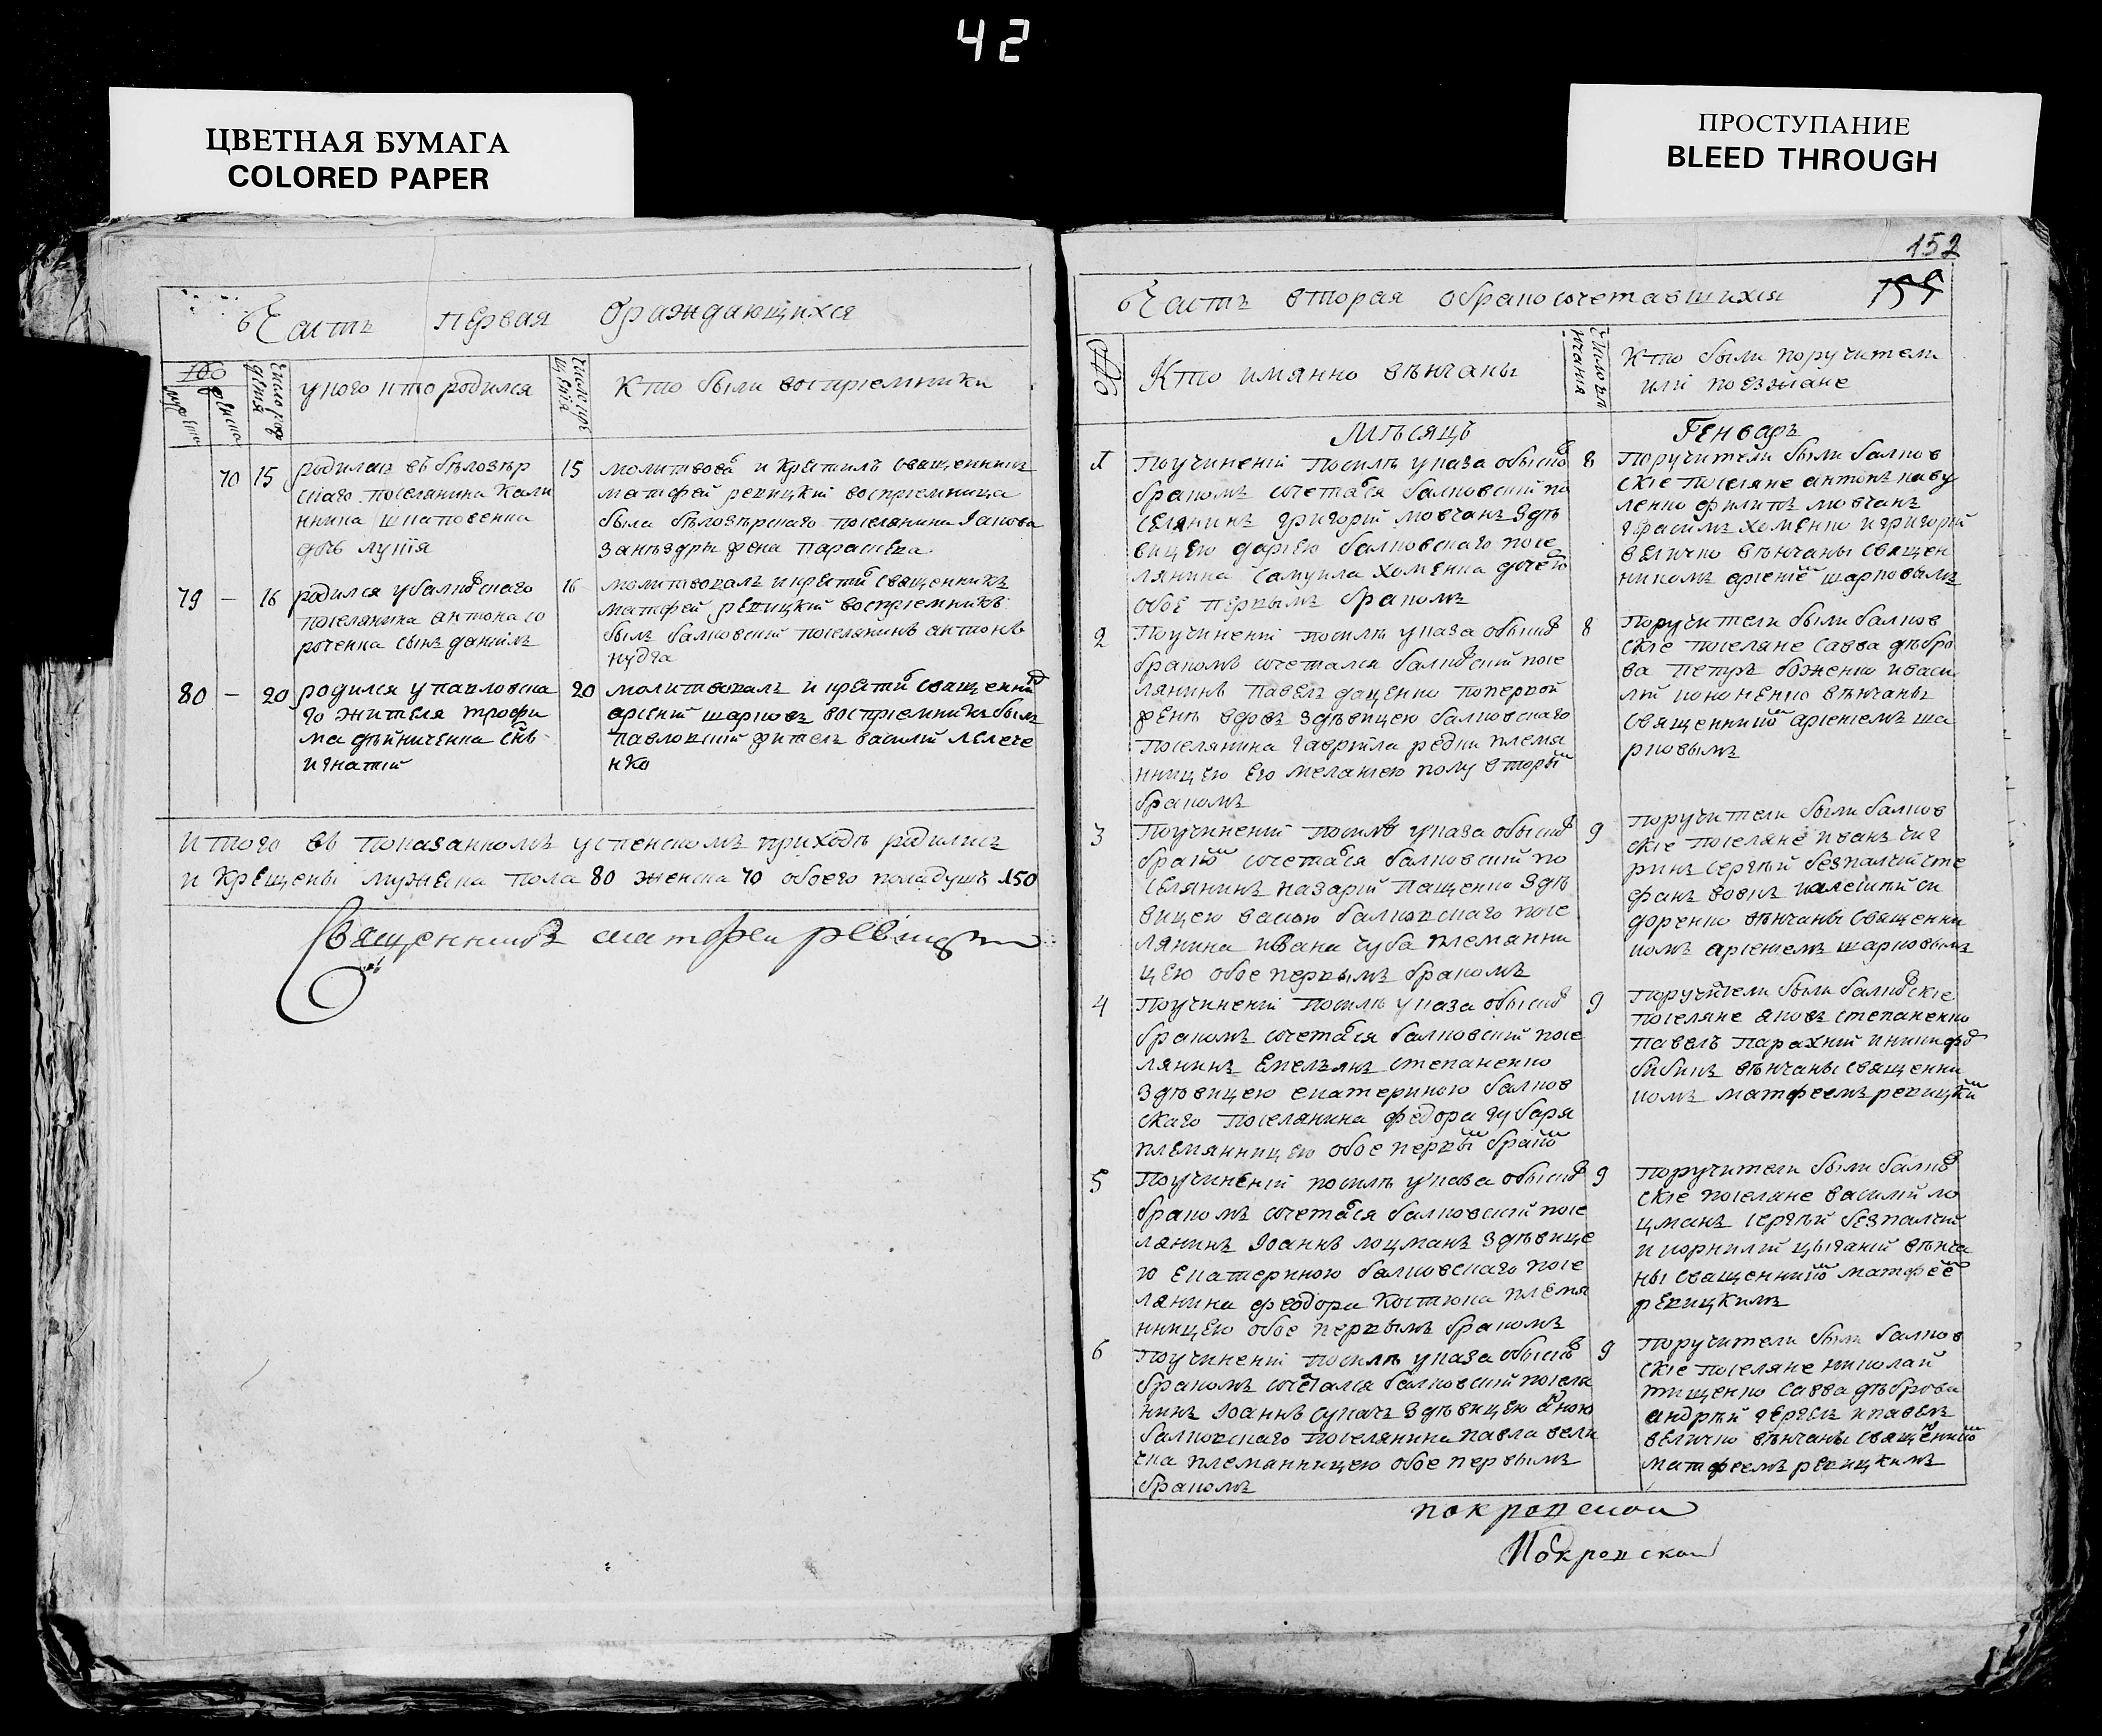 42
ЦВЕТНАЯ БУМАГА
COLORED PAPER
ПРОСТУПАНИЕ
BLEED THROUGH
Часть первая ораждающихся
у кого и кто родился
кто были восприемники
70 15 родилась въ бѣлозѣр
скаго поселянина Кали
нника
дочь лукія
15 молитвовал и крестилъ священникъ
матфей ревицкий восприемница
была бѣлозѣрскаго поселянина Іакова
жена параскева
79 — 16 родился у балковскаго
поселянина антона со
роченка сынъ даніилъ
16 молитвовалъ и крестил священникъ
матфей ревицкий восприемникъ
былъ балковскій поселянинъ антонъ
кудра
80 — 20 родился у павловска
го жителя трофи
ма дѣйниченка снъ
игнатій
20 молитвовалъ и крестил священник
арсеній шарковъ восприемникъ былъ
павловскій житель василій лелече
нко
итого въ показанномъ успенскомъ приходѣ родились
и крещены мужеска пола 80 женска 70 обоего пола душъ 150
Священникъ матфеи ревицкий
152
Часть вторая обракосочетавшихся
Кто имянно вѣнчаны
Кто были поручители
или поезжане
Мѣсяцъ Генварь
1 По учиненіи по силѣ указа обыска
бракомъ сочетался балковский по
селянинъ григорій мовчанъ здѣ
вицею дариею балковскаго посе
лянина самуила хоменка дочею
обое первымъ бракомъ
8 Поручители были балков
скіе поселяне антонъ каву
ленко филипъ мовчанъ
герасимъ хоменко и григорій
величко вѣнчаны священ
никомъ арсенїем шарковымъ
2 По учиненіи по силѣ указа обыска
бракомъ сочетался балковский посе
лянинъ павелъ даценко по первой
женѣ вдовъ здѣвицею балковскаго
поселянина гаврійла редки племя
нницею его меланіею полувторым
бракомъ
8 Поручители были балков
скіе поселяне савва дѣбро
ва петръ боженко и васи
лій кононенко вѣнчаны
священником арсеніемъ ша
рковымъ
3 По учиненіи по силѣ указа обыска
браком сочетался балковский по
селянинъ назарій пащенко здѣ
вицею васою балковскаго посе
лянина ивана чуба племянни
цею обое первымъ бракомъ
9 поручители были балков
скіе поселяне иванъ чиг
ринъ сергѣй безпалчий сте
фанъ вовкъ и алексѣй си
доренко вѣнчаны священни
комъ арсеніемъ шарковымъ
4 По учиненіи по силѣ указа обыска
бракомъ сочетался балковский посе
лянинъ Емельянъ степаненко
здѣвицею екатериною балков
скаго поселянина федора губаря
племянницею обое первым браком
9 поручители были балковскіе
поселяне яковъ степаненко
павелъ парахній и никифор
бибикъ вѣнчаны священни
комъ матфеемъ ревицким
5 По учиненіи по силѣ указа обыска
бракомъ сочетался балковский посе
лянинъ Іоаннъ лоцманъ здѣвице
ю екатериною балковскаго посе
лянина феодора костюка племя
нницею обое первымъ бракомъ
9 поручители были балков
скіе поселяне василій ло
цманъ сергѣй безпалчий
и корнилій цыганій вѣнча
ны священником матфеем
ревицкимъ
6 По учиненіи по силѣ указа обыска
бракомъ сочетался балковский поселя
нинъ Іоаннъ сукачъ здѣвицею анною
балковскаго поселянина павла вели
чка племянницею обое первымъ
бракомъ
9 поручители были балков
скіе поселяне николай
тищенко савва дѣброва
андрѣй гергель и павелъ
величко вѣнчаны священником
матфеемъ ревицкимъ
покровской
Покровской